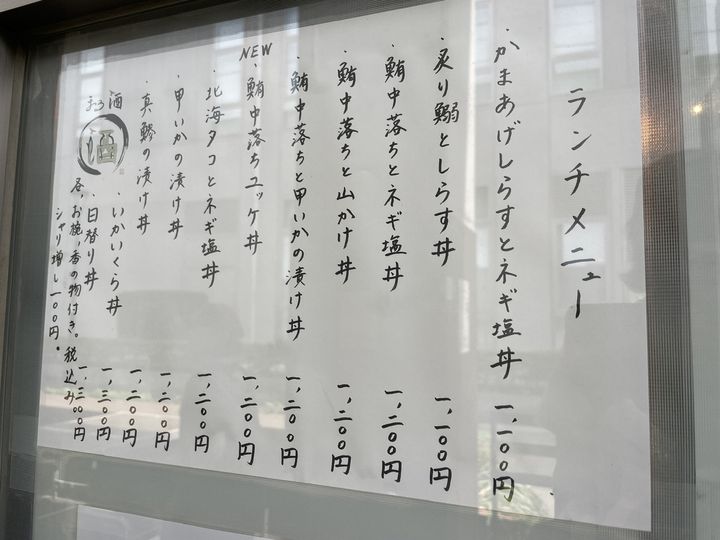 ランチメニュー
・かまあげしらすとネギ塩丼 一、一〇〇円
・炙り鰯としらす丼 一、一〇〇円
・鮪中落ちとネギ塩丼 一、二〇〇円
・鮪中落ちと山かけ丼 一、二〇〇円
・鮪中落ちと甲いかの漬け丼 一、二〇〇円
NEW
・鮪中落ちユッケ丼 一、二〇〇円
・北海タコとネギ塩丼 一、二〇〇円
・甲いかの漬け丼 一、二〇〇円
・真鯵の漬け丼 一、二〇〇円
・いかいくら丼 一、三〇〇円
・日替り丼 一、三〇〇円
各、お椀、香の物付き。税込み
シャリ増し一〇〇円。
酒
酒